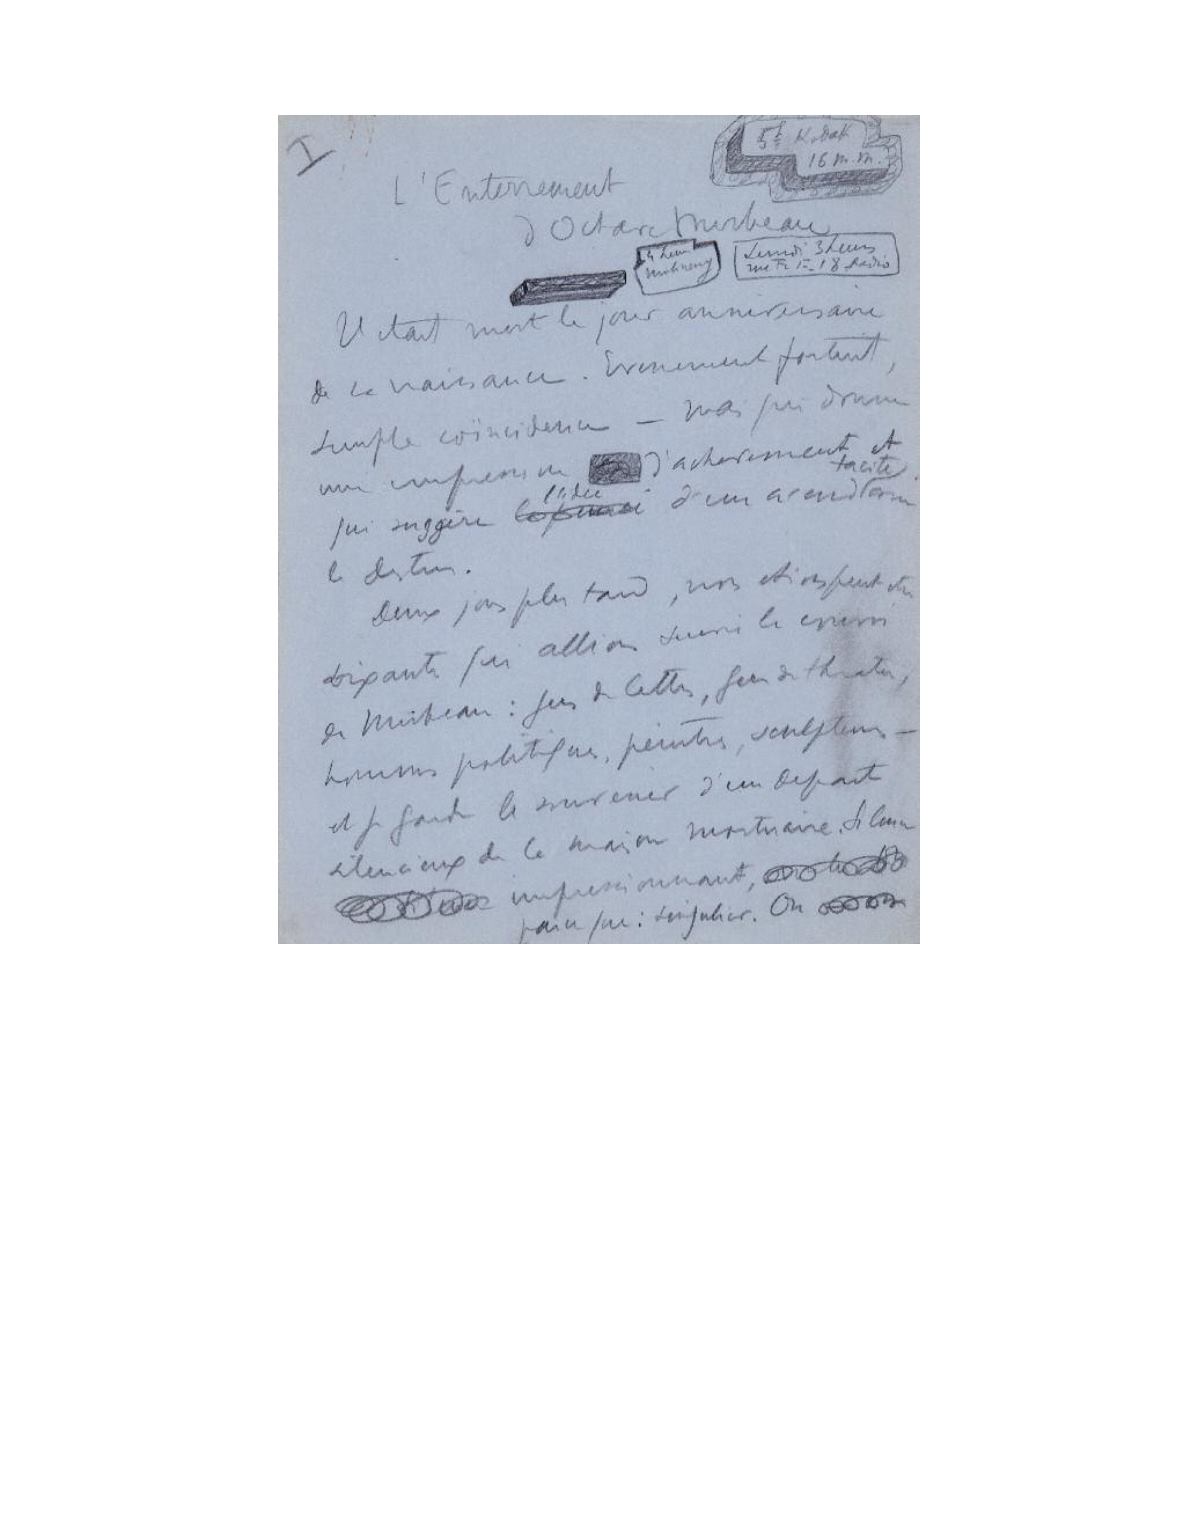 I
5f Kodak
16 m.m.
L'Enterrement
d'Octave Mirbeau
Lundi 3 heures
Radio
Il était mort le jour anniversaire
de sa naissance. Evenement fortuit,
simple coïncidence — mais qui donne
une impression d'achevement et
qui suggère l'idée d'un accord tacite avec
le destin.
Deux jours plus tard, nous étions peut etre
soixante qui allions suivre le convoi
de Mirbeau : gens de lettres, gens de theatre,
hommes politiques, peintres, sculpteurs —
et je garde le souvenir d'un depart
silencieux de la maison mortuaire. Silence
impressionnant,
parce que : singulier. On